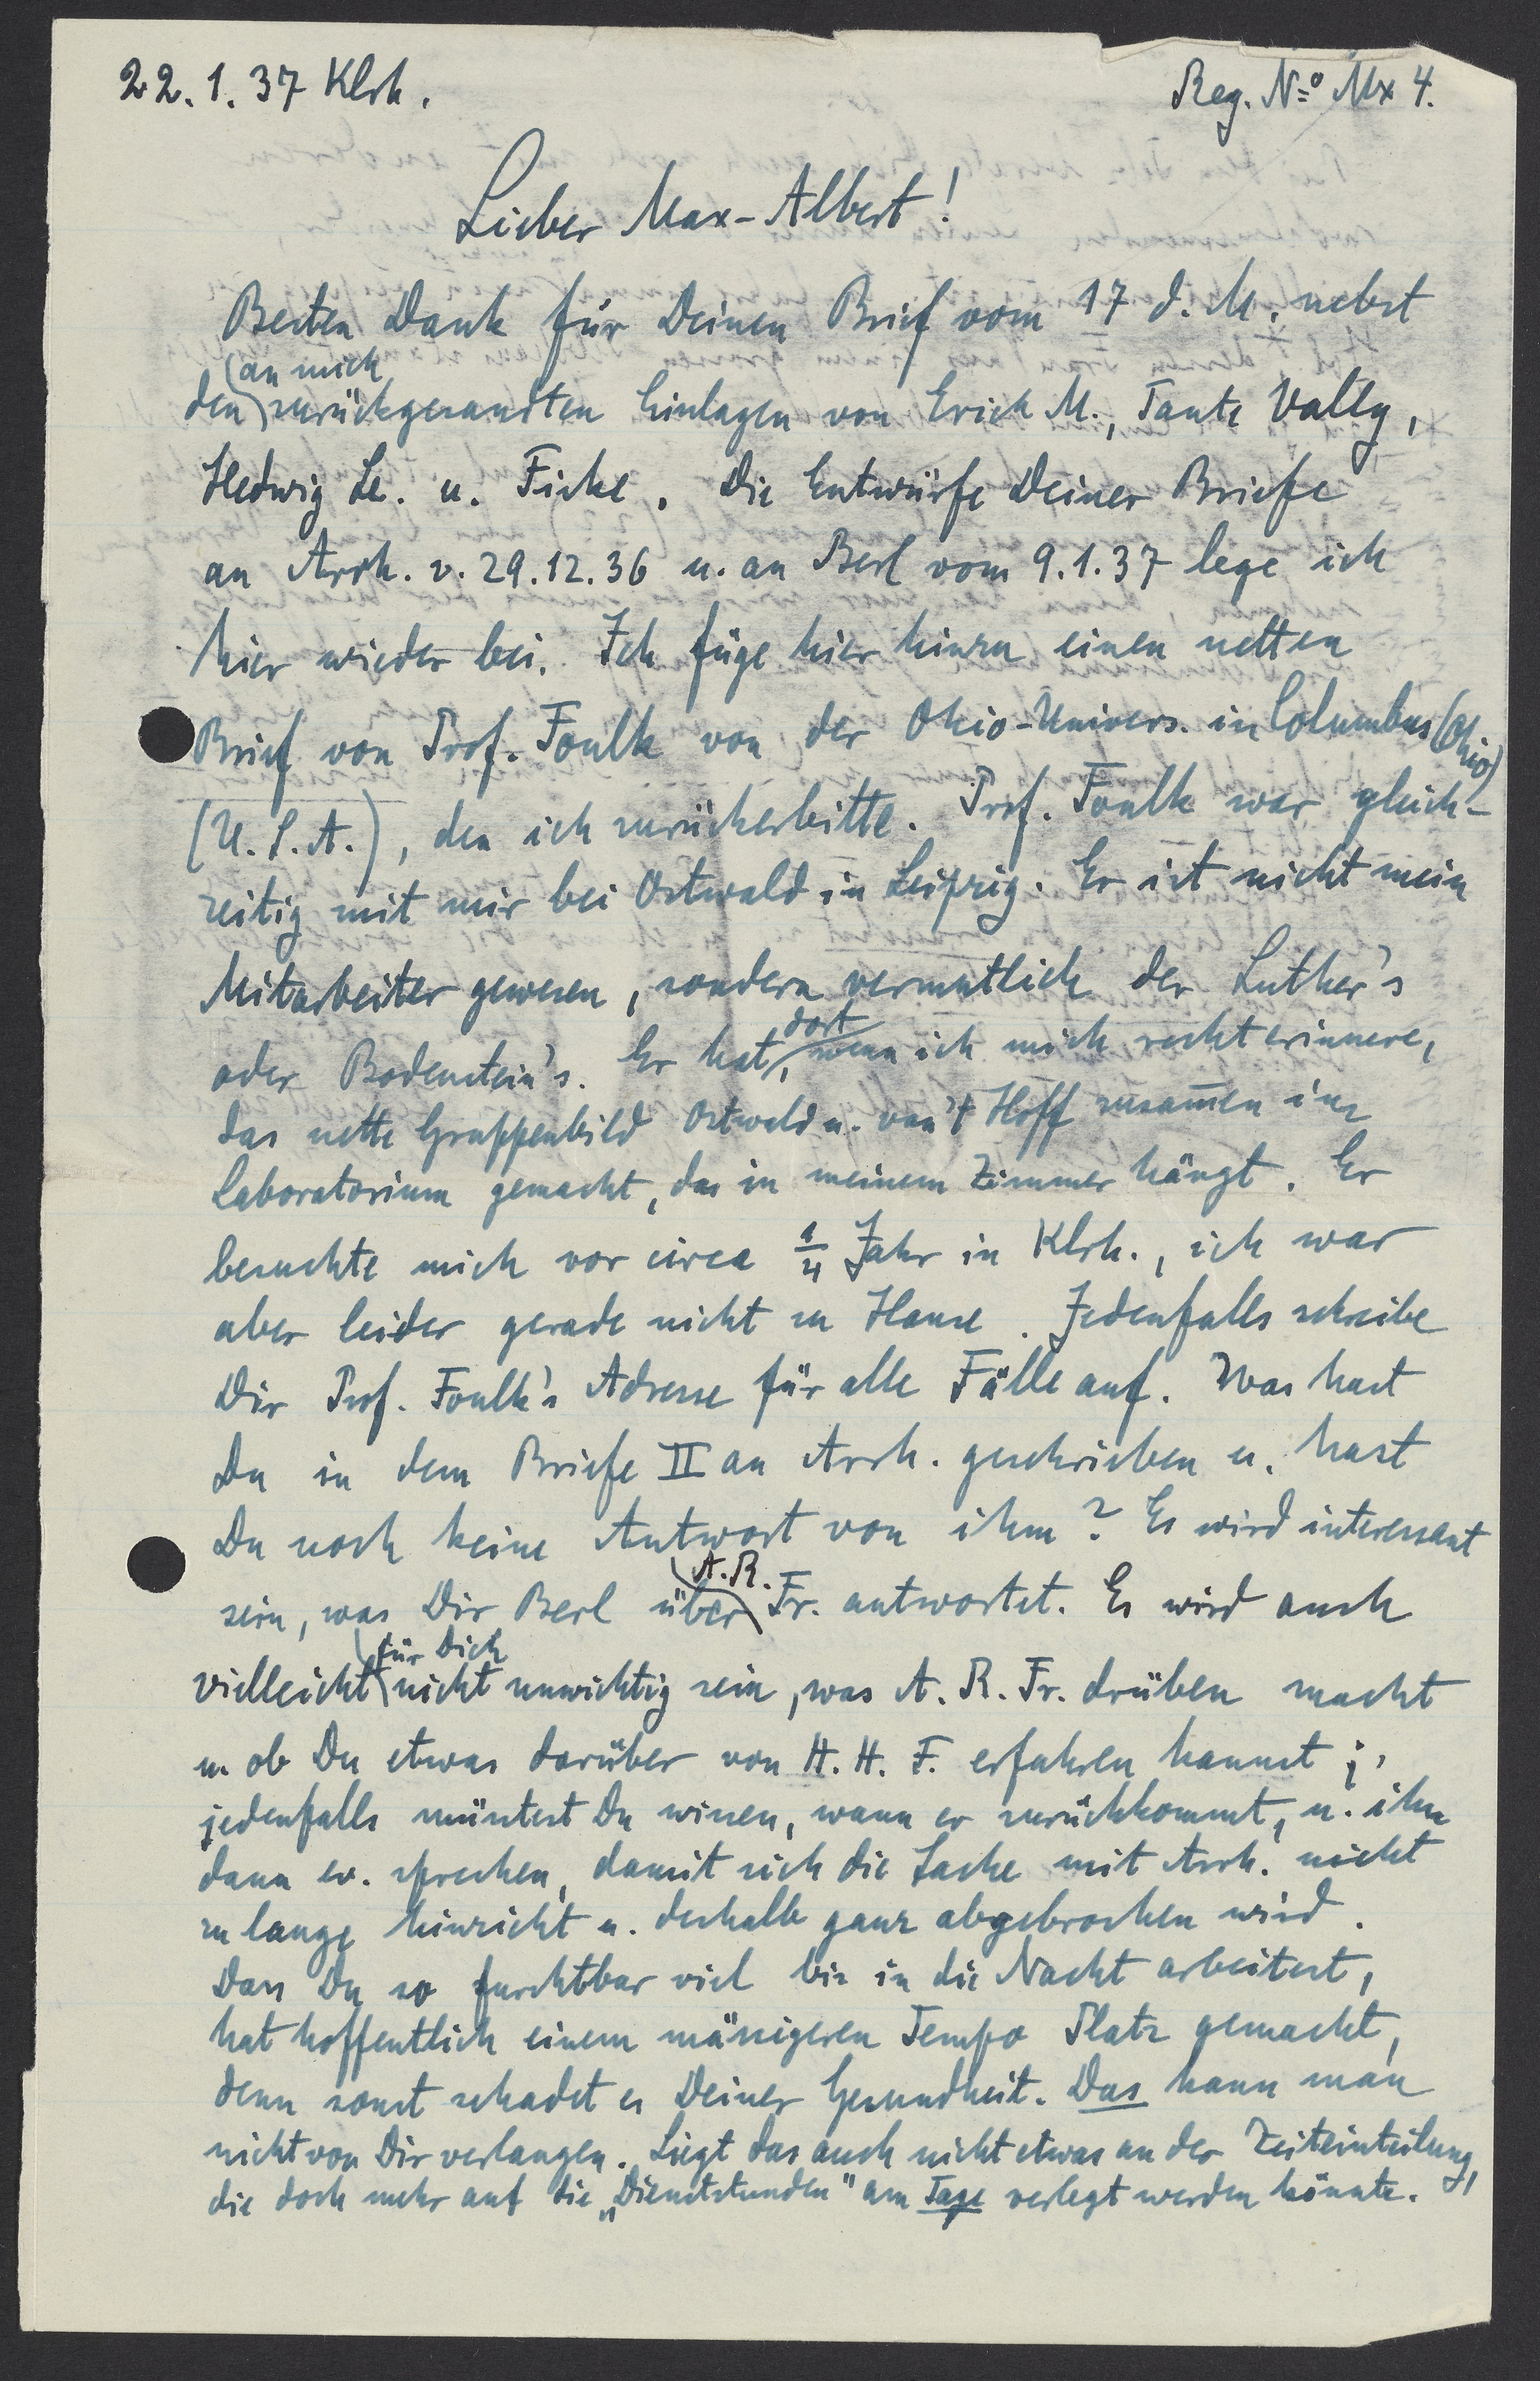 22.1.37 Klrh.
Reg. No Mx 4.
Lieber Max-Albert!
Besten Dank für Deinen Brief vom 17 d. M. nebst
den (an mich) zurückgesandten Einlagen von Erich M., Tante Vally,
Hedwig Le. u. Ficke. Die Entwürfe Deiner Briefe
an Arrh. v. 29.12.36 u. an Berl vom 9.1.37 lege ich
hier wieder bei. Ich füge hier hinzu einen netten
Brief von Prof. Foulk von der Ohio-Univers. in Columbus (Ohio)
(U.S.A.), den ich zurückerbitte. Prof. Foulk war gleich-
zeitig mit mir bei Ostwald in Leipzig. Er ist nicht mein
Mitarbeiter gewesen, sondern vermutlich der Luther's
oder Bodenstein's. Er hat dort, wenn ich mich recht erinnere,
das nette Gruppenbild Ostwald u. van't Hoff zusammen im
Laboratorium gemacht, das in meinem Zimmer hängt. Er
besuchte mich vor circa 1/4 Jahr in Klrh., ich war
aber leider gerade nicht zu Hause. Jedenfalls schreibe
Dir Prof. Foulk's Adresse für alle Fälle auf. Was hast
Du in dem Briefe II an Arrh. geschrieben u. hast
Du noch keine Antwort von ihm? Es wird interessant
sein, was Dir Berl über A.R. Fr. antwortet. Es wird auch
vielleicht für Dich nicht unwichtig sein, was A. R. Fr. drüben macht
u. ob Du etwas darüber von H. H. F. erfahren kannst;
jedenfalls müsstest Du wissen, wann er zurückkommt, u. ihn
dann ev. sprechen, damit sich die Sache mit Arrh. nicht
zu lange hinzieht u. deshalb ganz abgebrochen wird.
Dass Du so furchtbar viel bis in die Nacht arbeitest,
hat hoffentlich einem mässigeren Tempo Platz gemacht,
denn sonst schadet es Deiner Gesundheit. Das kann man
nicht von Dir verlangen. Liegt das auch nicht etwas an der Zeiteinteilung,
die doch mehr auf die „Dienststunden" am Tage verlegt werden könnte.